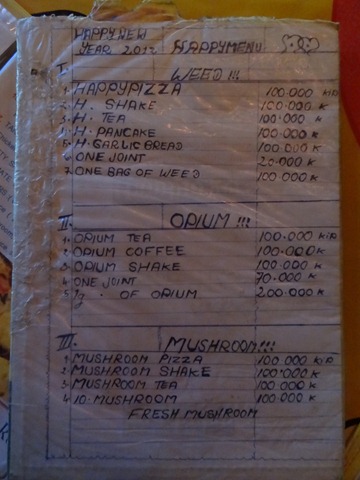 HAPPY NEW
YEAR 2012 HAPPY MENU
I. WEED !!!
1 HAPPY PIZZA 100.000 KIP
2 H. SHAKE 100.000 K
3 H. TEA 100.000 K
4 H. PANCAKE 100.000 K
5 H. GARLIC BREAD 100.000 K
6 ONE JOINT 20.000 K
7 ONE BAG OF WEED 100.000 K
II. OPIUM !!!
1. OPIUM TEA 100.000 KIP
2 OPIUM COFFEE 100.000 K
3 OPIUM SHAKE 100.000 K
4 ONE JOINT 70.000 K
5 1g. OF OPIUM 200.000 K
III. MUSHROOM !!!
1 MUSHROOM PIZZA 100.000 KIP
2 MUSHROOM SHAKE 100.000 K
3 MUSHROOM TEA 100.000 K
4 10. MUSHROOM 100.000 K
FRESH MUSHROOM